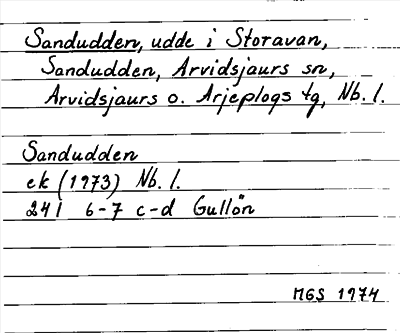 Sandudden, udde i Storavan,
Sandudden, Arvidsjaurs sn,
Arvidsjaurs o. Arjeplogs tg, Nb. l.
Sandudden
ek (1973) Nb. l.
24 I 6-7 c-d Gullön
MGS 1974